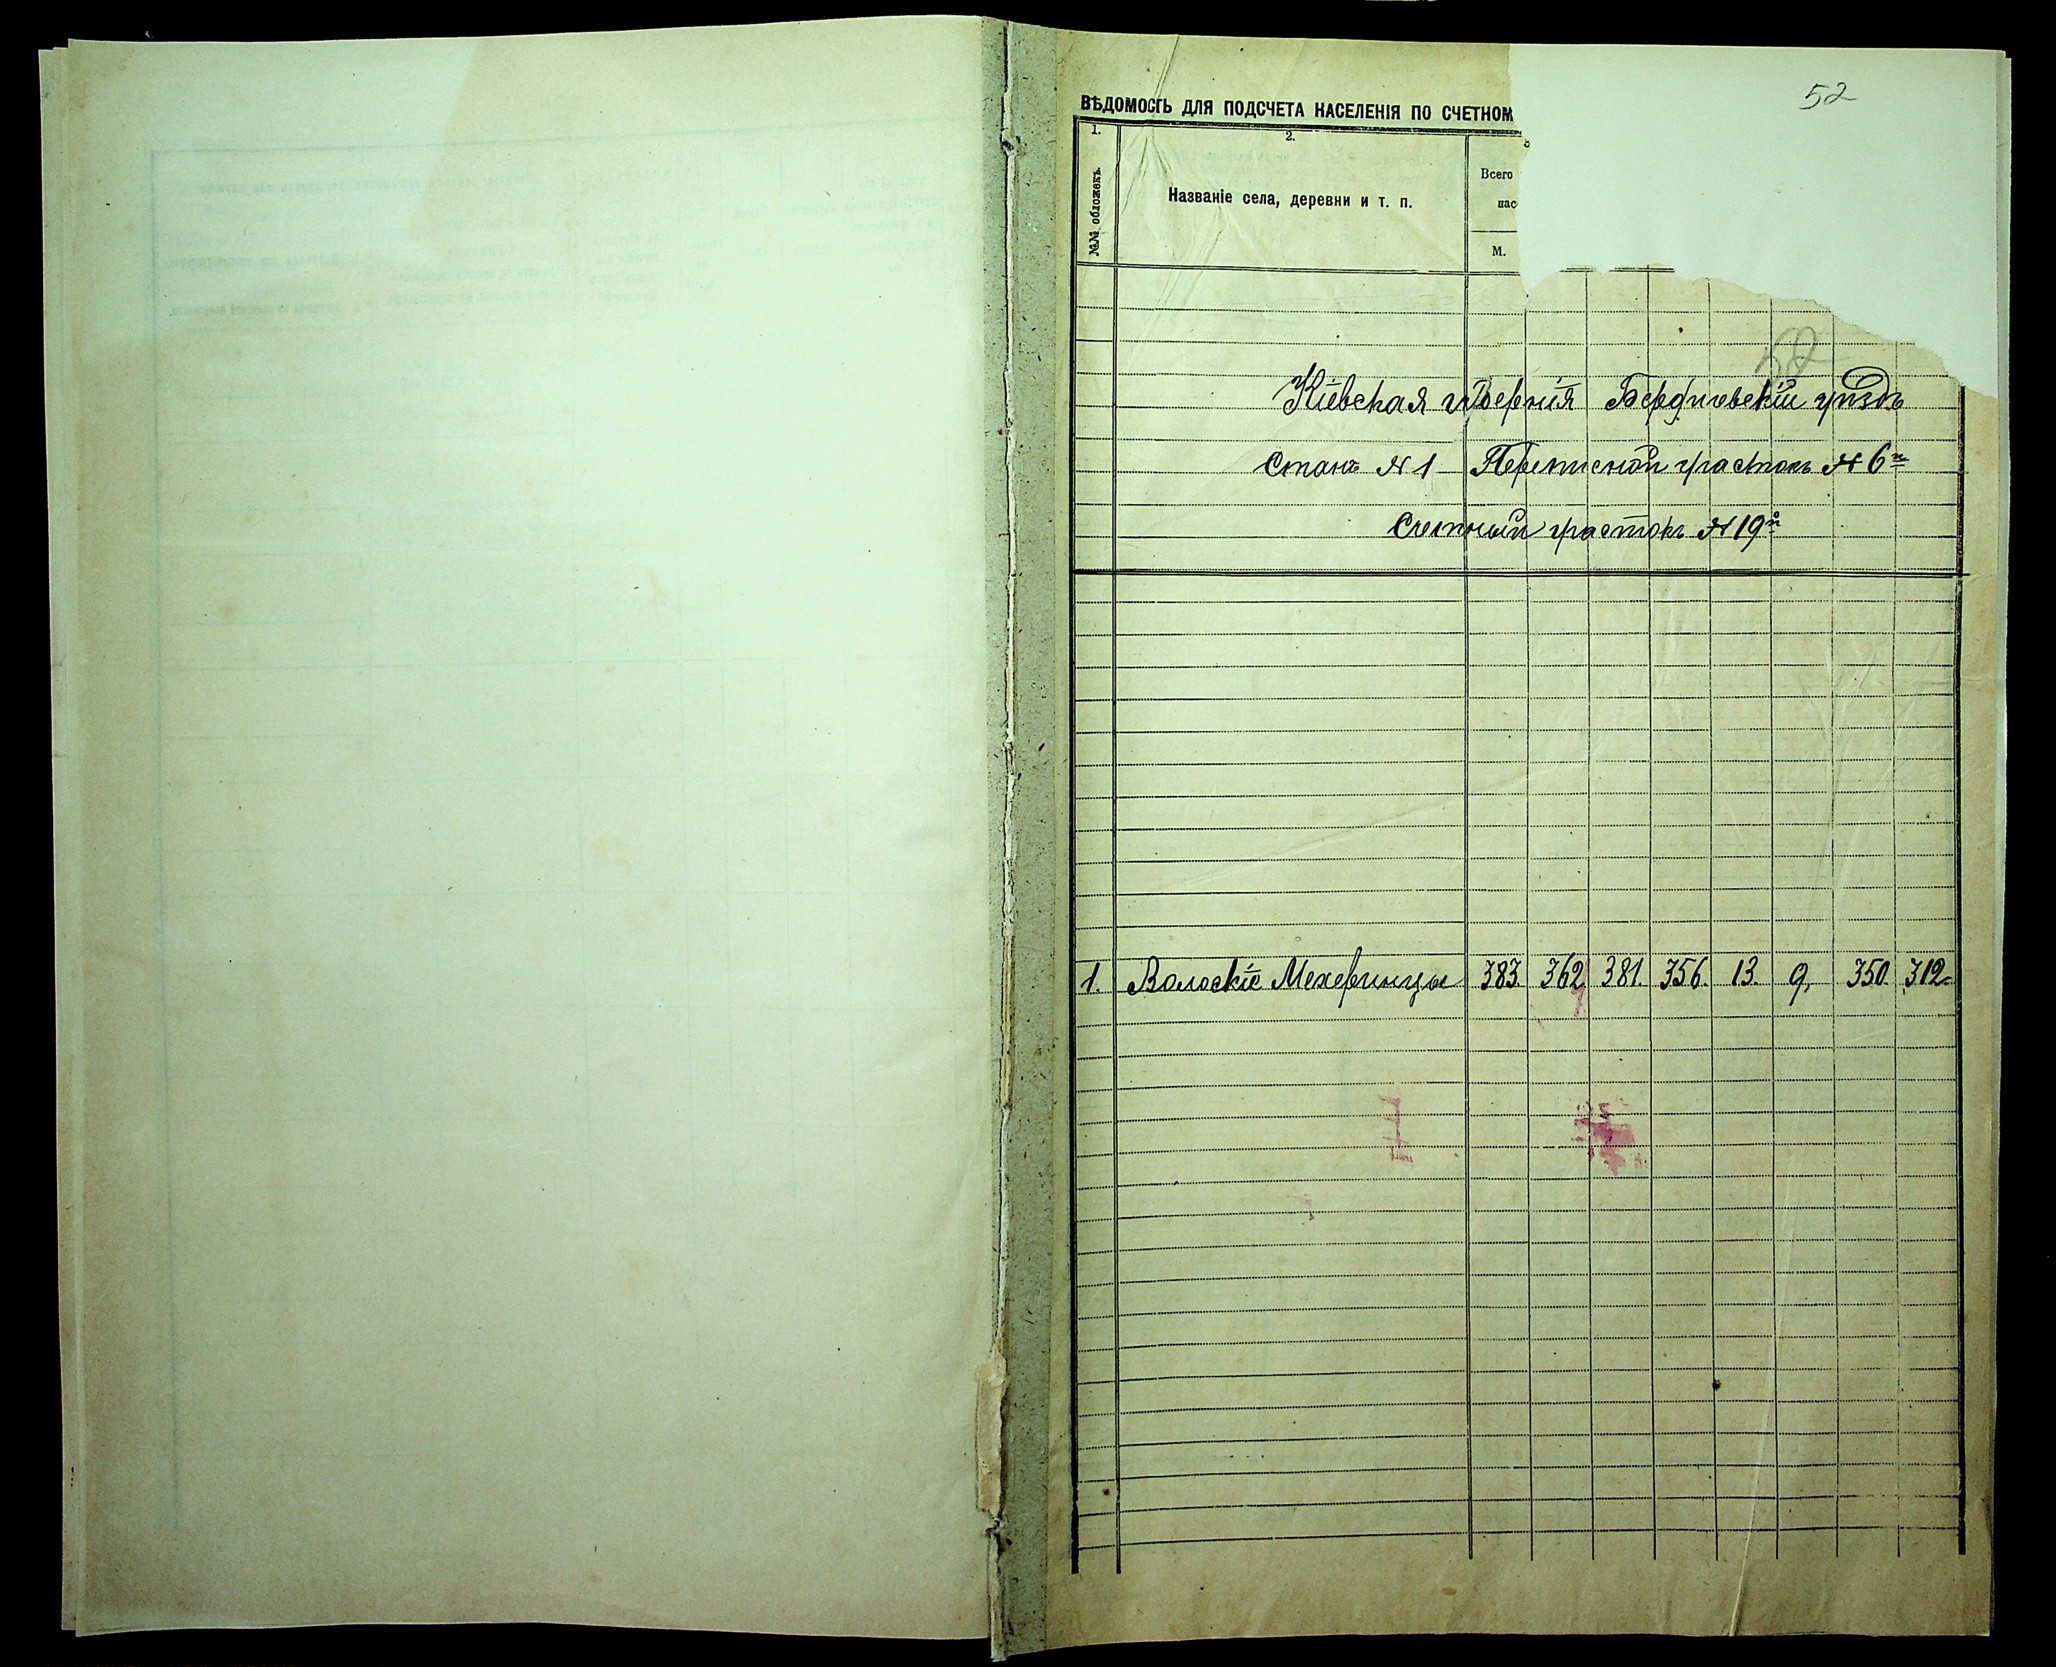 52
ВѢДОМОСТЬ ДЛЯ ПОДСЧЕТА НАСЕЛЕНІЯ ПО СЧЕТНОМ
1.
2.
№№ обложекъ.
Названіе села, деревни и т. п.
Всего
нас
М.
52
Кіевская губернія Бердичевскій уѣздъ
Станъ № 1 Переписной участокъ № 6й
Счетный участокъ № 19й
1. Волоскіе Мехеринцы 383. 362. 381. 356. 13. 9. 350. 312.